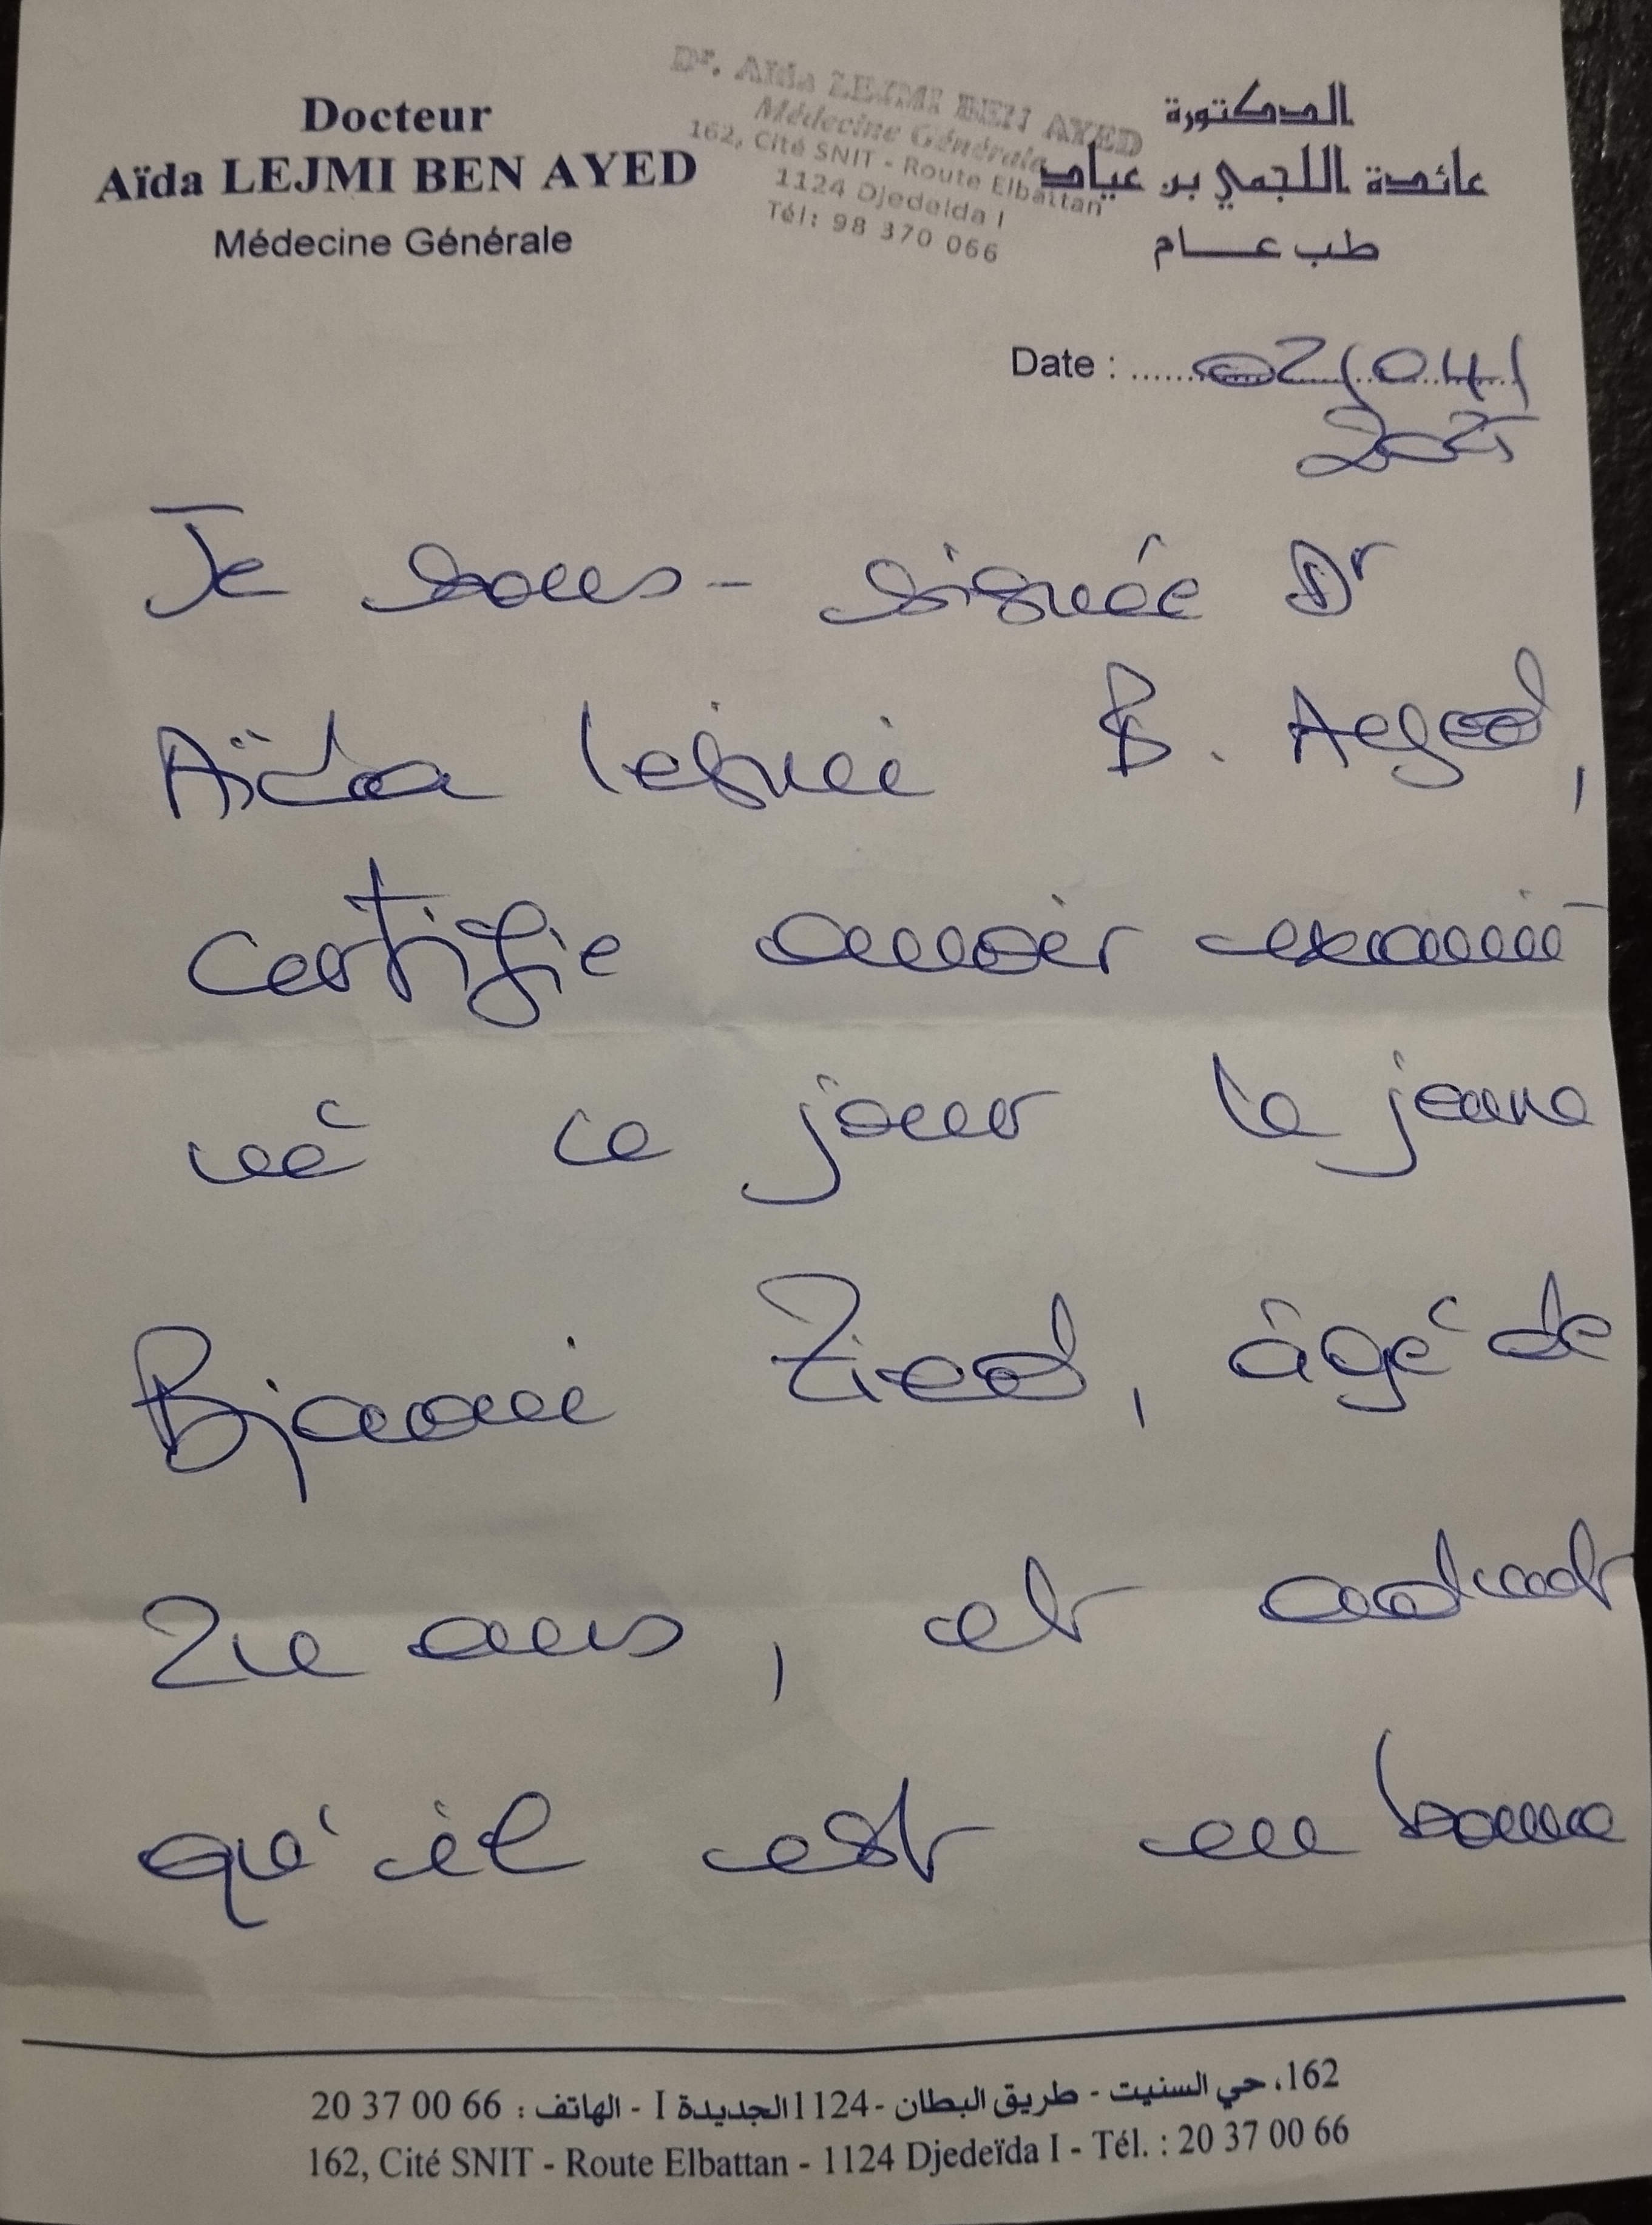 Docteur
Aïda LEJMI BEN AYED
Médecine Générale
Dr. Aïda LEJMI BEN AYED
Médecine Générale
162, Cité SNIT - Route Elbattan
1124 Djedeida I
Tél: 98 370 066
الدكتورة
عائدة اللجمي بن عياد
طب عــام
Date : 02/04/
2025
Je sous-signée Dr
Aïda Lejmi B. Ayed,
certifie avoir exami-
né ce jour le jeune
Zied, âgé de
ans, et
qu'il est en bonne
162، حي السنيت - طريق البطان -1124 الجديدة I - الهاتف : 66 00 37 20
162, Cité SNIT - Route Elbattan - 1124 Djedeïda I - Tél. : 20 37 00 66